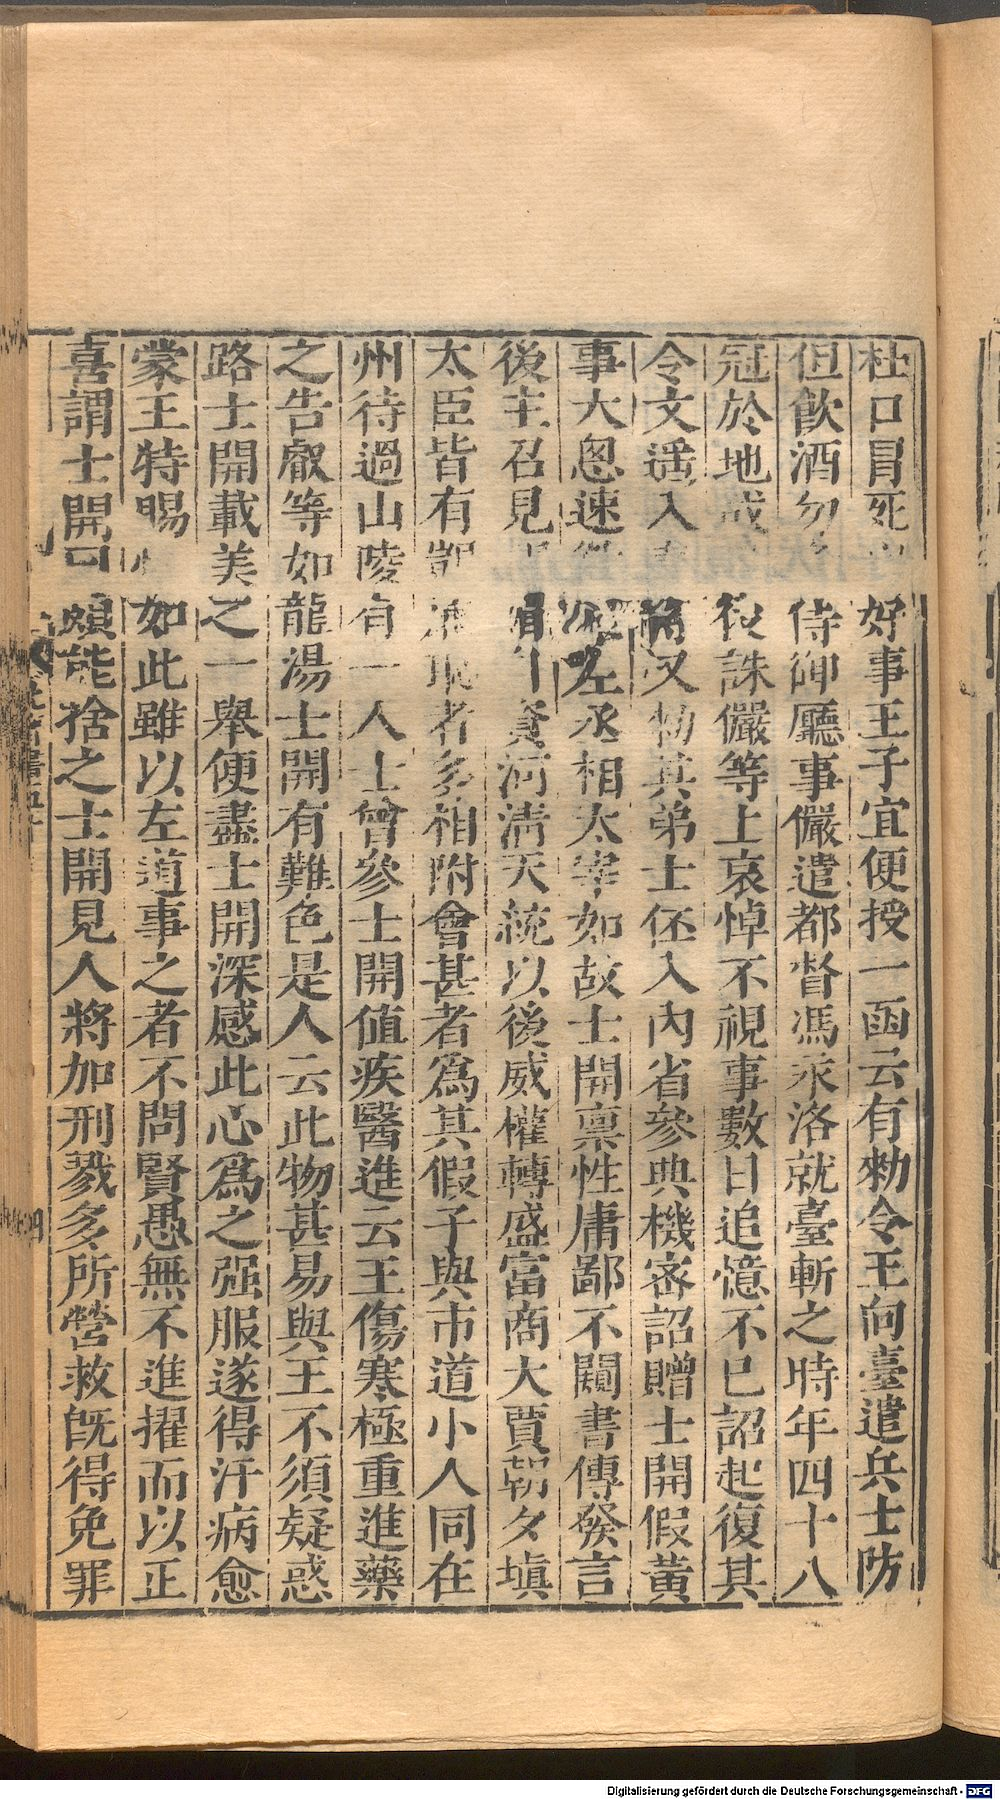 杜口冒死好事王子宜便授一函云有勑令王向臺遣兵士防
但飲酒勿侍御廳事儼遣都督馮永洛就臺斬之時年四十八
冠於地或誅儼等上哀悼不視事數日追憶不已詔起復其
令文遥入又勑其弟士伾入內省參典機密詔贈士開假黃
事大悤速左丞相太宰如故士開稟性庸鄙不闚書傳發言
後主召見資河清天統以後威權轉盛富商大賈朝夕填
太臣皆有恥者多相附會甚者爲其假子與市道小人同在
州待過山陵有一人士曾參士開值疾醫進云王傷寒極重進藥
之告叡等如龍湯士開有難色是人云此物甚易與王不須疑惑
路士開載美之一舉便盡士開深感此心爲之强服遂得汗病愈
蒙王特賜如此雖以左道事之者不問賢愚無不進擢而以正
喜謂士開頗能捨之士開見人將加刑戮多所營救旣得免罪
Digitalisierung gefördert durch die Deutsche Forschungsgemeinschaft - DFG